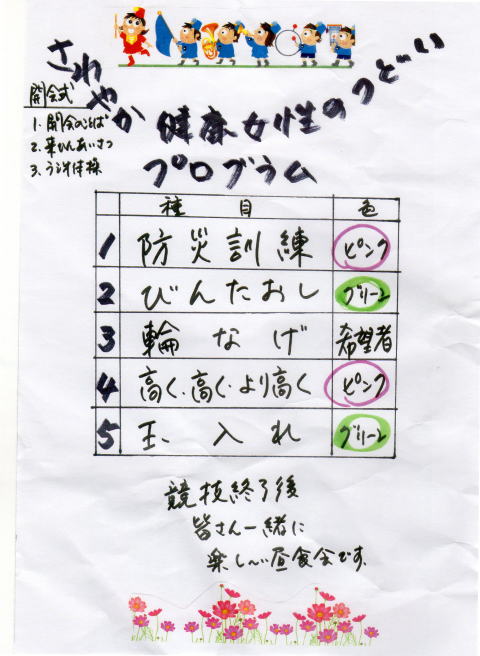 さわやか健康女性のつどい
プログラム
開会式
1. 開会のことば
2. 来ひんあいさつ
3. ラジオ体操
種目 色
1 防災訓練 ピンク
2 びんたおし グリーン
3 輪なげ 希望者
4 高く、高く、より高く ピンク
5 玉入れ グリーン
競技終了後
皆さん一緒に
楽し〜い昼食会です。